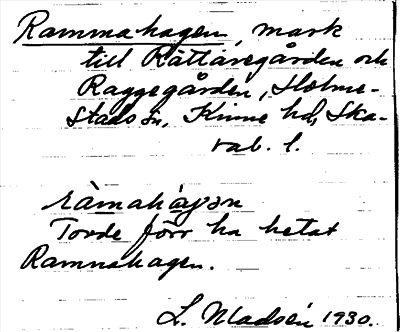 Rammahagen, mark
till Rättaregården och
Raggegården, Holme-
stads sn, Kinne hd, Ska-
rab. l.
ràmahágən
Torde förr ha hetat
Ramnahagen.
L. Madsén 1930.